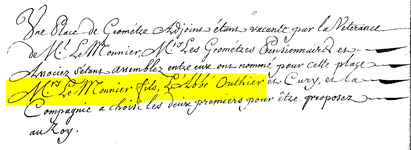 Une Place de Geométre Adjoint étant vacante par la Veterance
de Mr. Le Monnier, Mrs. Les Geométres Pensionnaires et
Associez s'étant assemblez entre eux ont nommé pour cette place
Mrs. Le Monnier fils, L'Abbé Outhier et Cury, et la
Compagnie a choisi les deux premiers pour être proposez
au Roy.